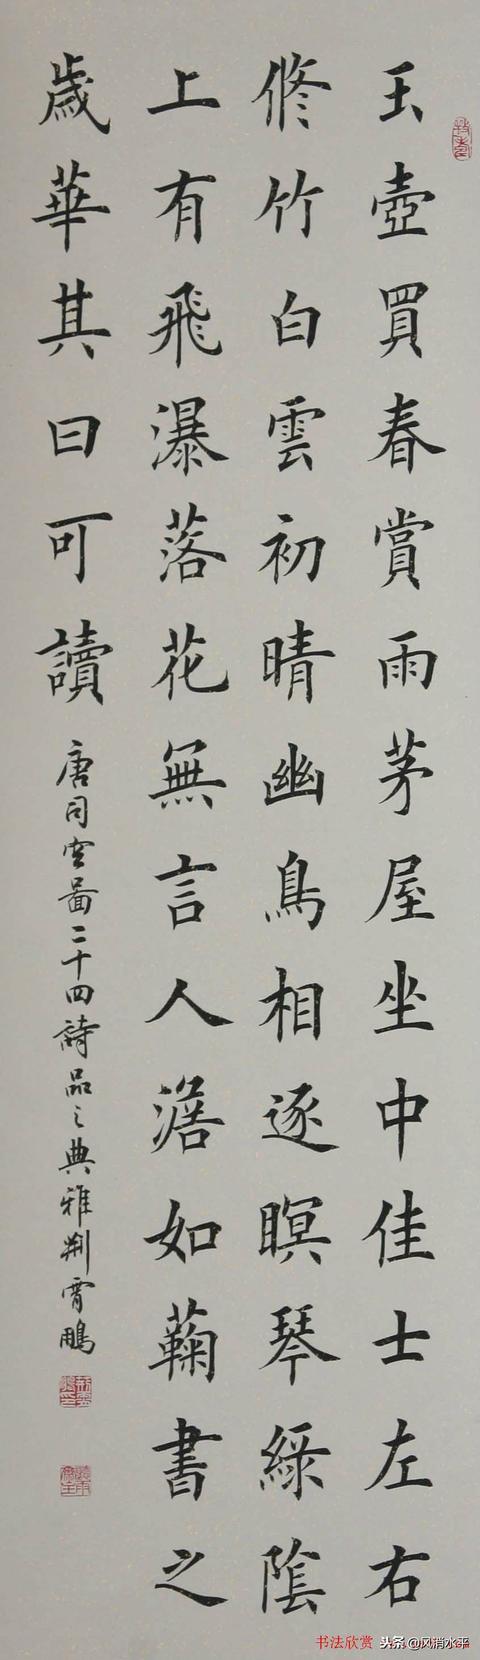 玉壺買春賞雨茅屋坐中佳士左右
修竹白雲初晴幽鳥相逐瞑琴綠陰
上有飛瀑落花無言人澹如菊書之
歲華其曰可讀
唐司空圖二十四詩品之典雅荆霄鵬
书法欣赏 头条@风消水平